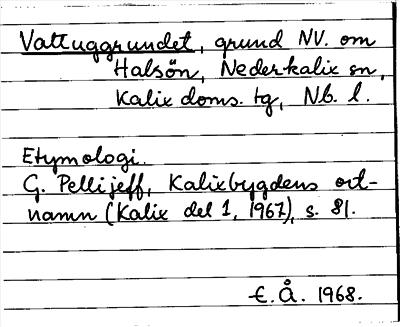 Vattuggrundet, grund NV. om
Halsön, Nederkalix sn,
Kalix doms. tg, Nb. l.
Etymologi.
G. Pellijeff, Kalixbygdens ort-
namn (Kalix del 1, 1967), s. 81.
E. Å. 1968.